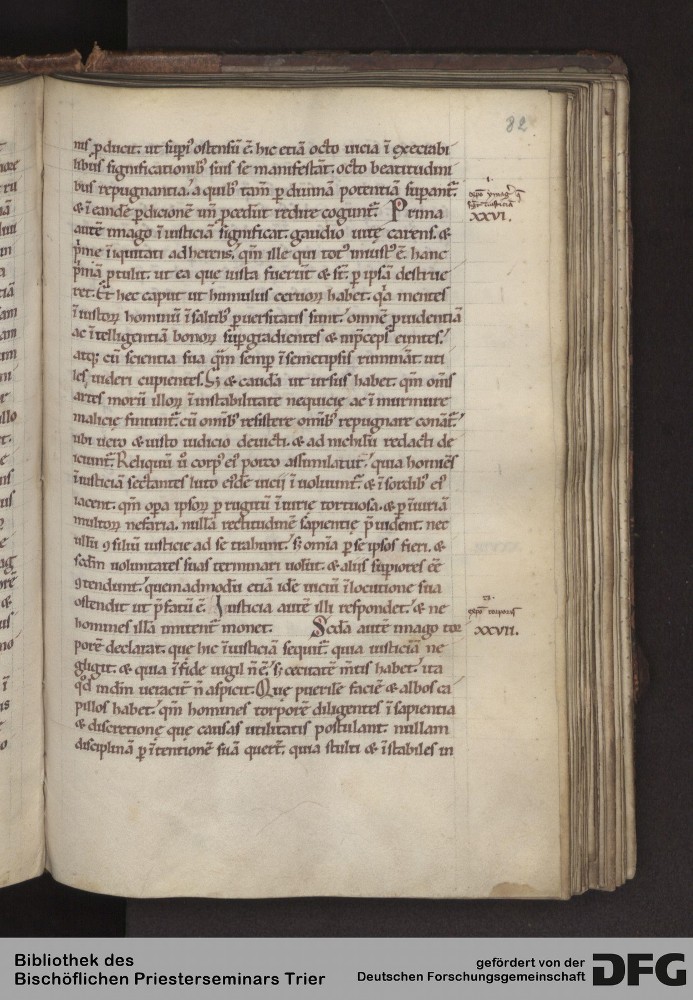 82
nis ꝓducit. ut supͥ ostensū ē. hic etiā octo uicia ī execrabi
libus significationibꝰ suis se manifestāt. octo beatitudini
bus repugnantia. a quibꝰ tam̄ ꝑ diuinā potentiā supant̄.
& ī eandē ꝑdicionē un̄ ꝓcedūt redire cogunt̄. Prima
autē imago īiusticiā significat. gaudio uitę carens. &
p̄me īiquitati adherens. qm̄ ille qui totꝰ iniustꝰ ē. hanc
p̄miā ꝓtulit. ut ea que iusta fuerūt & st̄. ꝑ ipsā destrue
ret. Et hec caput ut hinnulus ceruoꝝ habet. qͥa mentes
īiustoꝝ hominū ī saltibꝰ ꝑuersitatis sunt. omnē ꝓuidentiā
ac ītelligentiā bonoꝝ sup̄gradientes & in p̄ceps euntes.
atqꝫ cū scientia sua qm̄ semꝑ ī semetipsis ruminat. uti
les uideri cupientes. Sꝫ & cauda ut ursus habet. qm̄ om̄s
artes morū illoꝝ ī instabilitate nequicie ac ī murmure
malicię finiunt̄. cū omībꝰ resistere omībꝰ repugnare conāt̄.
ubi uero & iusto iudicio deuicti. & ad nichilū redacti de
iciunt̄. Reliquū ū corpꝰ eiꝰ porco assimilatur. quia homines
īiusticiā sectantes luto eiꝰde uicij īuoluunt̄. & ī sordibꝰ eiꝰ
iacent. qm̄ opa ipsoꝝ ꝑ rugitū īiurię tortuosa. & ꝑ īiuriā
multoꝝ nefaria. nullā rectitudinē sapientię p̄uident. nec
ullū ꝯsiliū iusticie ad se trahunt. sꝫ omīa ꝑ se ipsos fieri. &
sedm̄ uoluntates suas terminari uolūt. & aliis supiores eē
ꝯtendunt. quemadmodū etiā idē uiciū ī locutione sua
ostendit ut p̄fatū ē. Iusticia autē illi respondet. & ne
homines illā imitent̄ monet. Scd̄a autē imago tor
porē declarat. que hic īiusticiā sequit̄. quia iusticiā ne
gligit. & quia ī fide uigil n̄ ē. sꝫ cecitatē m̄tis habet. ita
qd̄ in dm̄ ueracit̄ n̄ aspicit. Que puerilē faciē & albos ca
pillos habet. qm̄ homines torporē diligentes ī sapientia
& discretionę que causas utilitatis postulant. nullam
disciplinā ꝑ ītentionē suā querūt. quia stulti & īstabiles in
XXVI.
XXVII.
Bibliothek des
Bischöflichen Priesterseminars Trier
gefördert von der
Deutschen Forschungsgemeinschaft
DFG